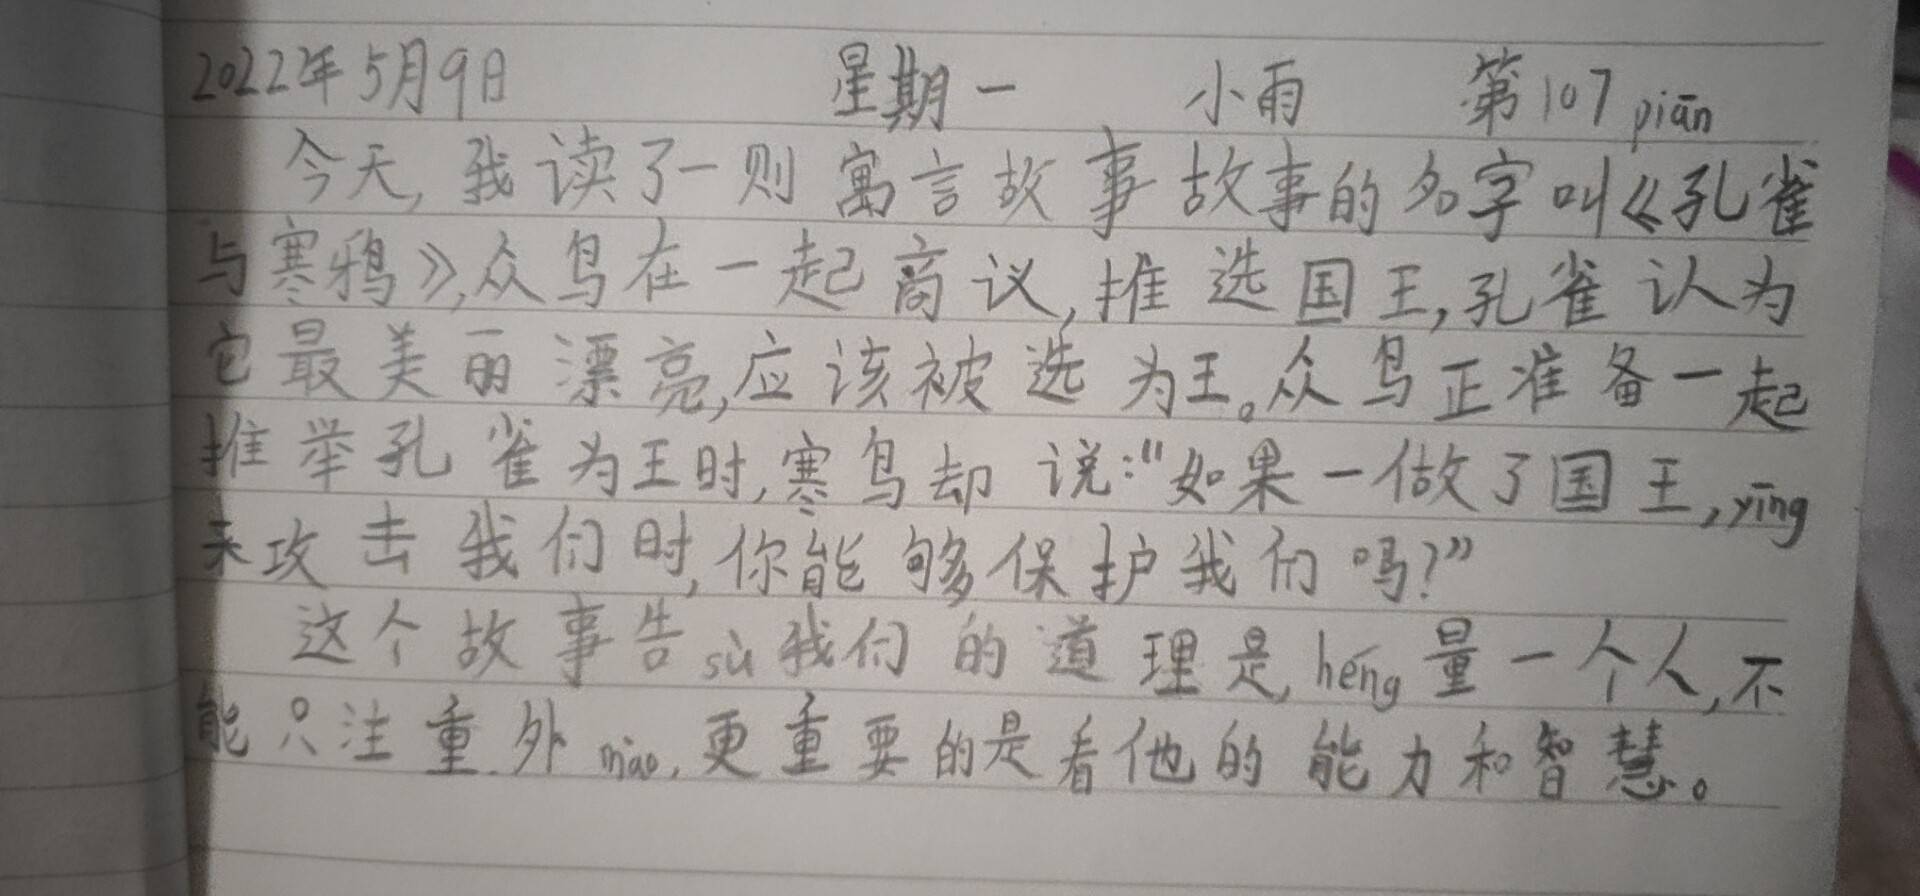 2022年5月9日 星期一 小雨 第107piān
今天,我读了一则寓言故事故事的名字叫《孔雀
与寒鸦》,众鸟在一起商议,推选国王,孔雀认为
它最美丽漂亮,应该被选为王。众鸟正准备一起
推举孔雀为王时,寒鸟却说:"如果一做了国王,yīng
来攻击我们时,你能够保护我们吗?"
这个故事告sù我们的道理是,héng量一个人,不
能只注重外mào,更重要的是看他的能力和智慧。